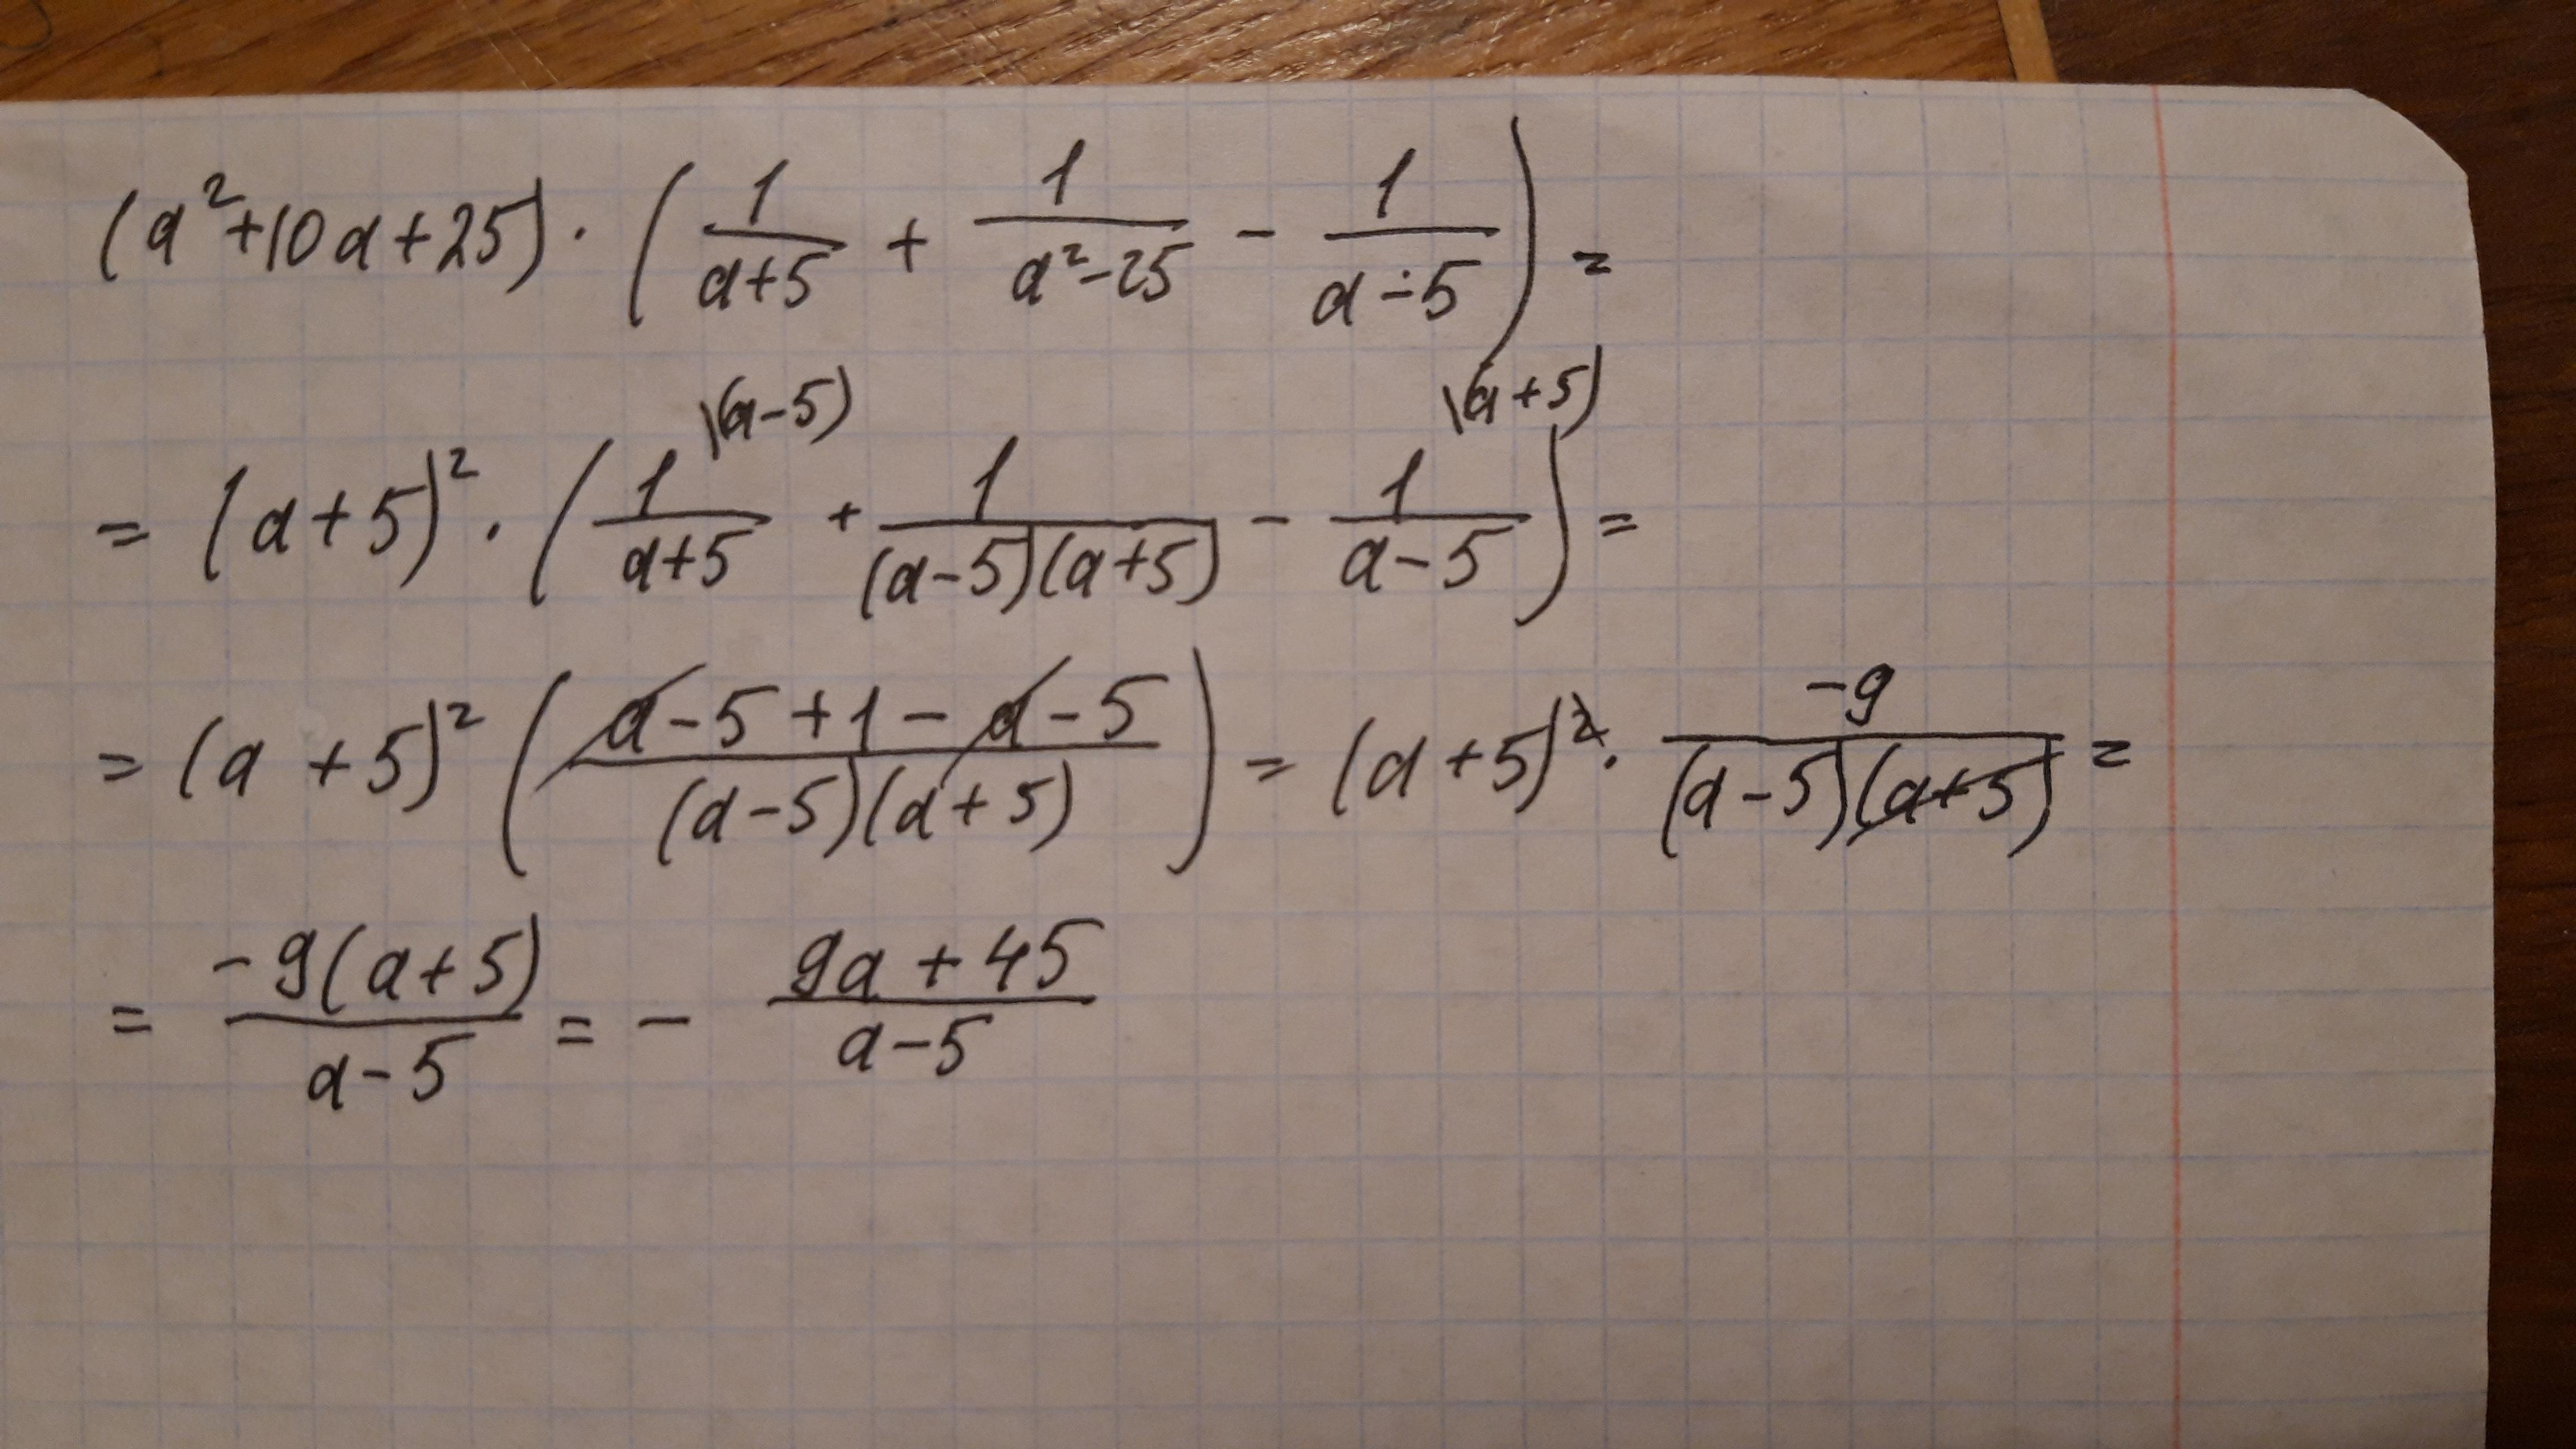 (a²+10a+25)·(1/(a+5) + 1/(a²-25) - 1/(a-5)) =
\(a-5) \(a+5)
= (a+5)²·(1/(a+5) + 1/((a-5)(a+5)) - 1/(a-5)) =
= (a+5)²((a-5+1-a-5)/((a-5)(a+5))) = (a+5)²·(-9)/((a-5)(a+5)) =
= -9(a+5)/(a-5) = - (9a+45)/(a-5)